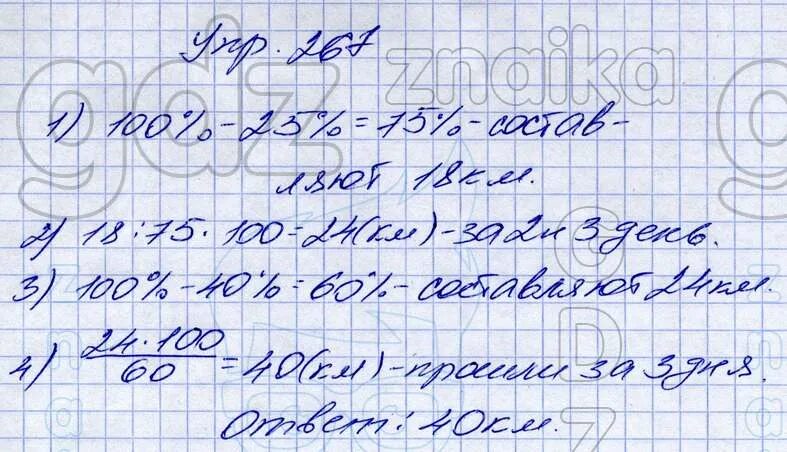 Упр. 267
1) 100% - 25% = 75% - состав-
ляют 18 км.
2) 18 : 75 · 100 = 24 (км) - за 2 и 3 день.
3) 100% - 40% = 60% - составляют 24 км.
4) 24 · 100 / 60 = 40 (км) - прошли за 3 дня.
Ответ: 40 км.
gdz znaika